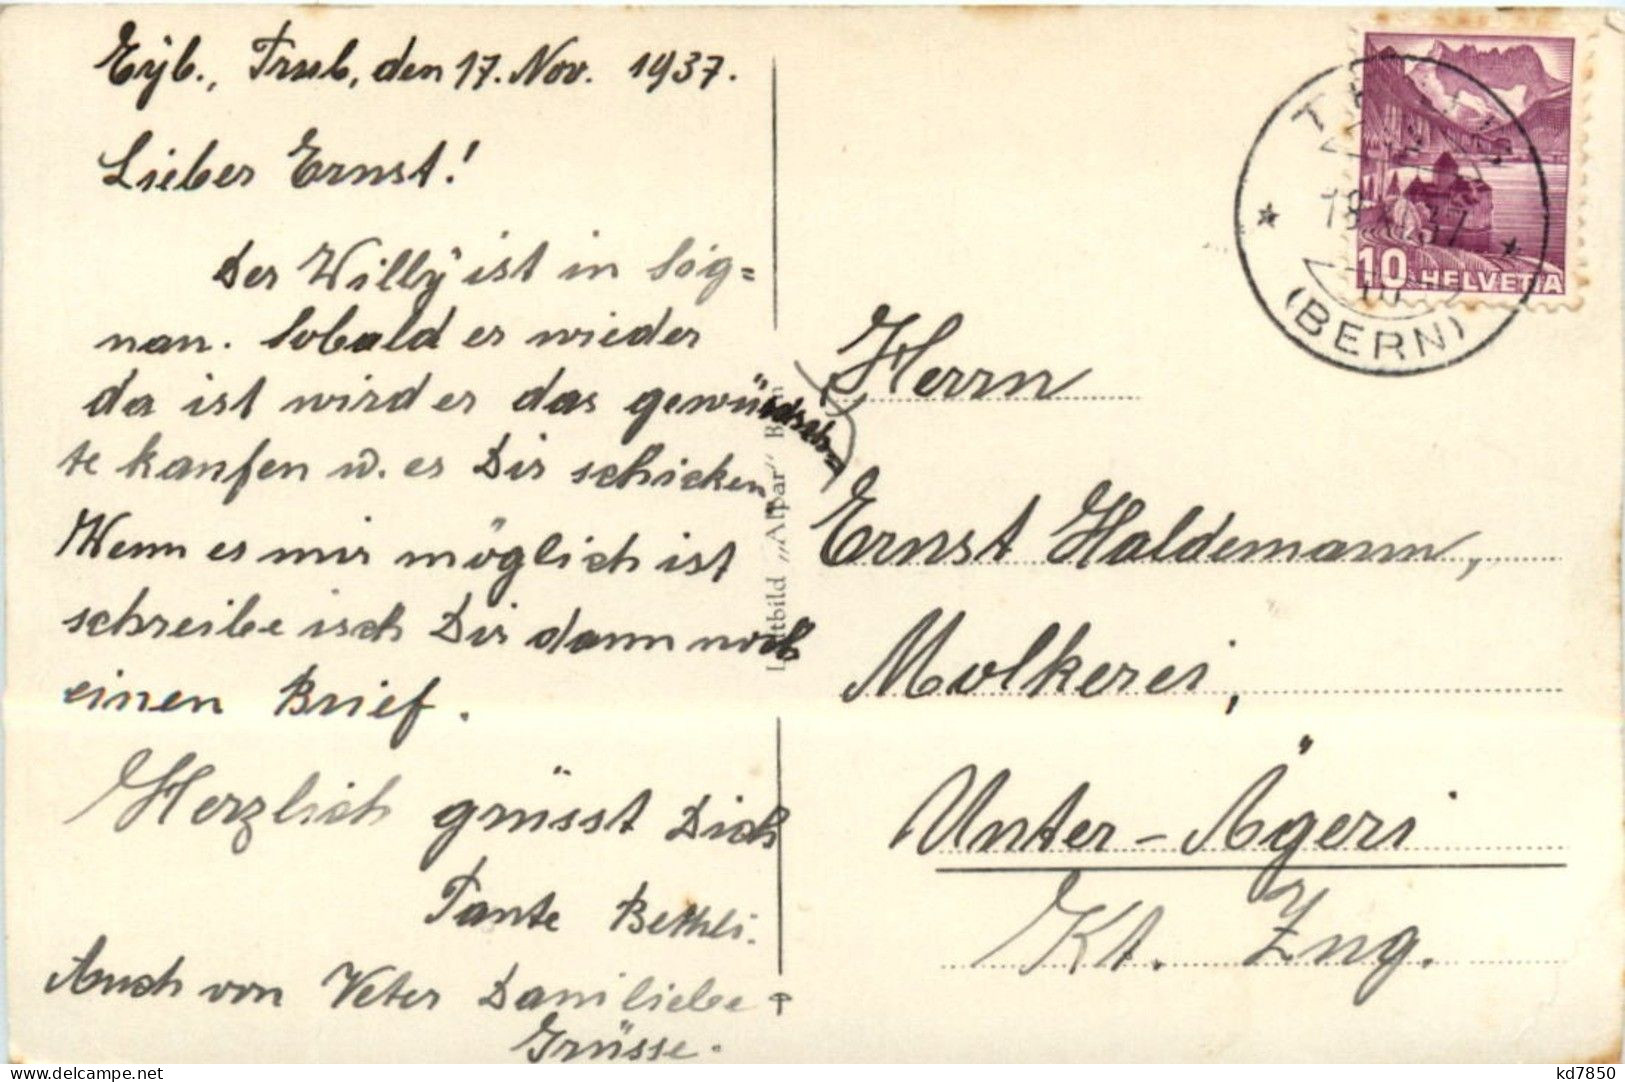 Eÿb., Trub, den 17. Nov. 1937.
Lieber Ernst!
Der Willÿ ist in Sig=
nau. Sobald er wieder
da ist wird er das gewünsch=
te kaufen u. es Dir schicken
Wenn es mir möglich ist
schreibe isch Dir dann noch
einen Brief.
Herzlich grüsst Dich
Tante Bethli.
Auch von Veter Dani liebe
Grüsse.
Luftbild „Alpar" Bern
(BERN)
18.XI.37
10 HELVETIA
Herrn
Ernst Haldemann,
Molkerei,
Unter-Ägeri
Kt. Zug.
www.delcampe.net
kd7850